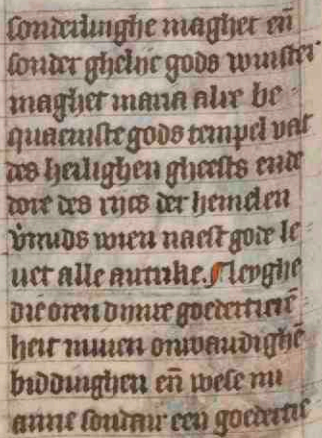 sonderlinghe maghet en̄
sonder ghelije gods
maghet maria alre be
quaemste gods tempel vat
des heilighen gheests ende
dore des rijcs der hemelen
wien naest gode le
uet alle Neyghe
die oren dinre goedertierē
heit minen onwaudighē
biddinghen en̄ wese mi
arme sondair een goedertie